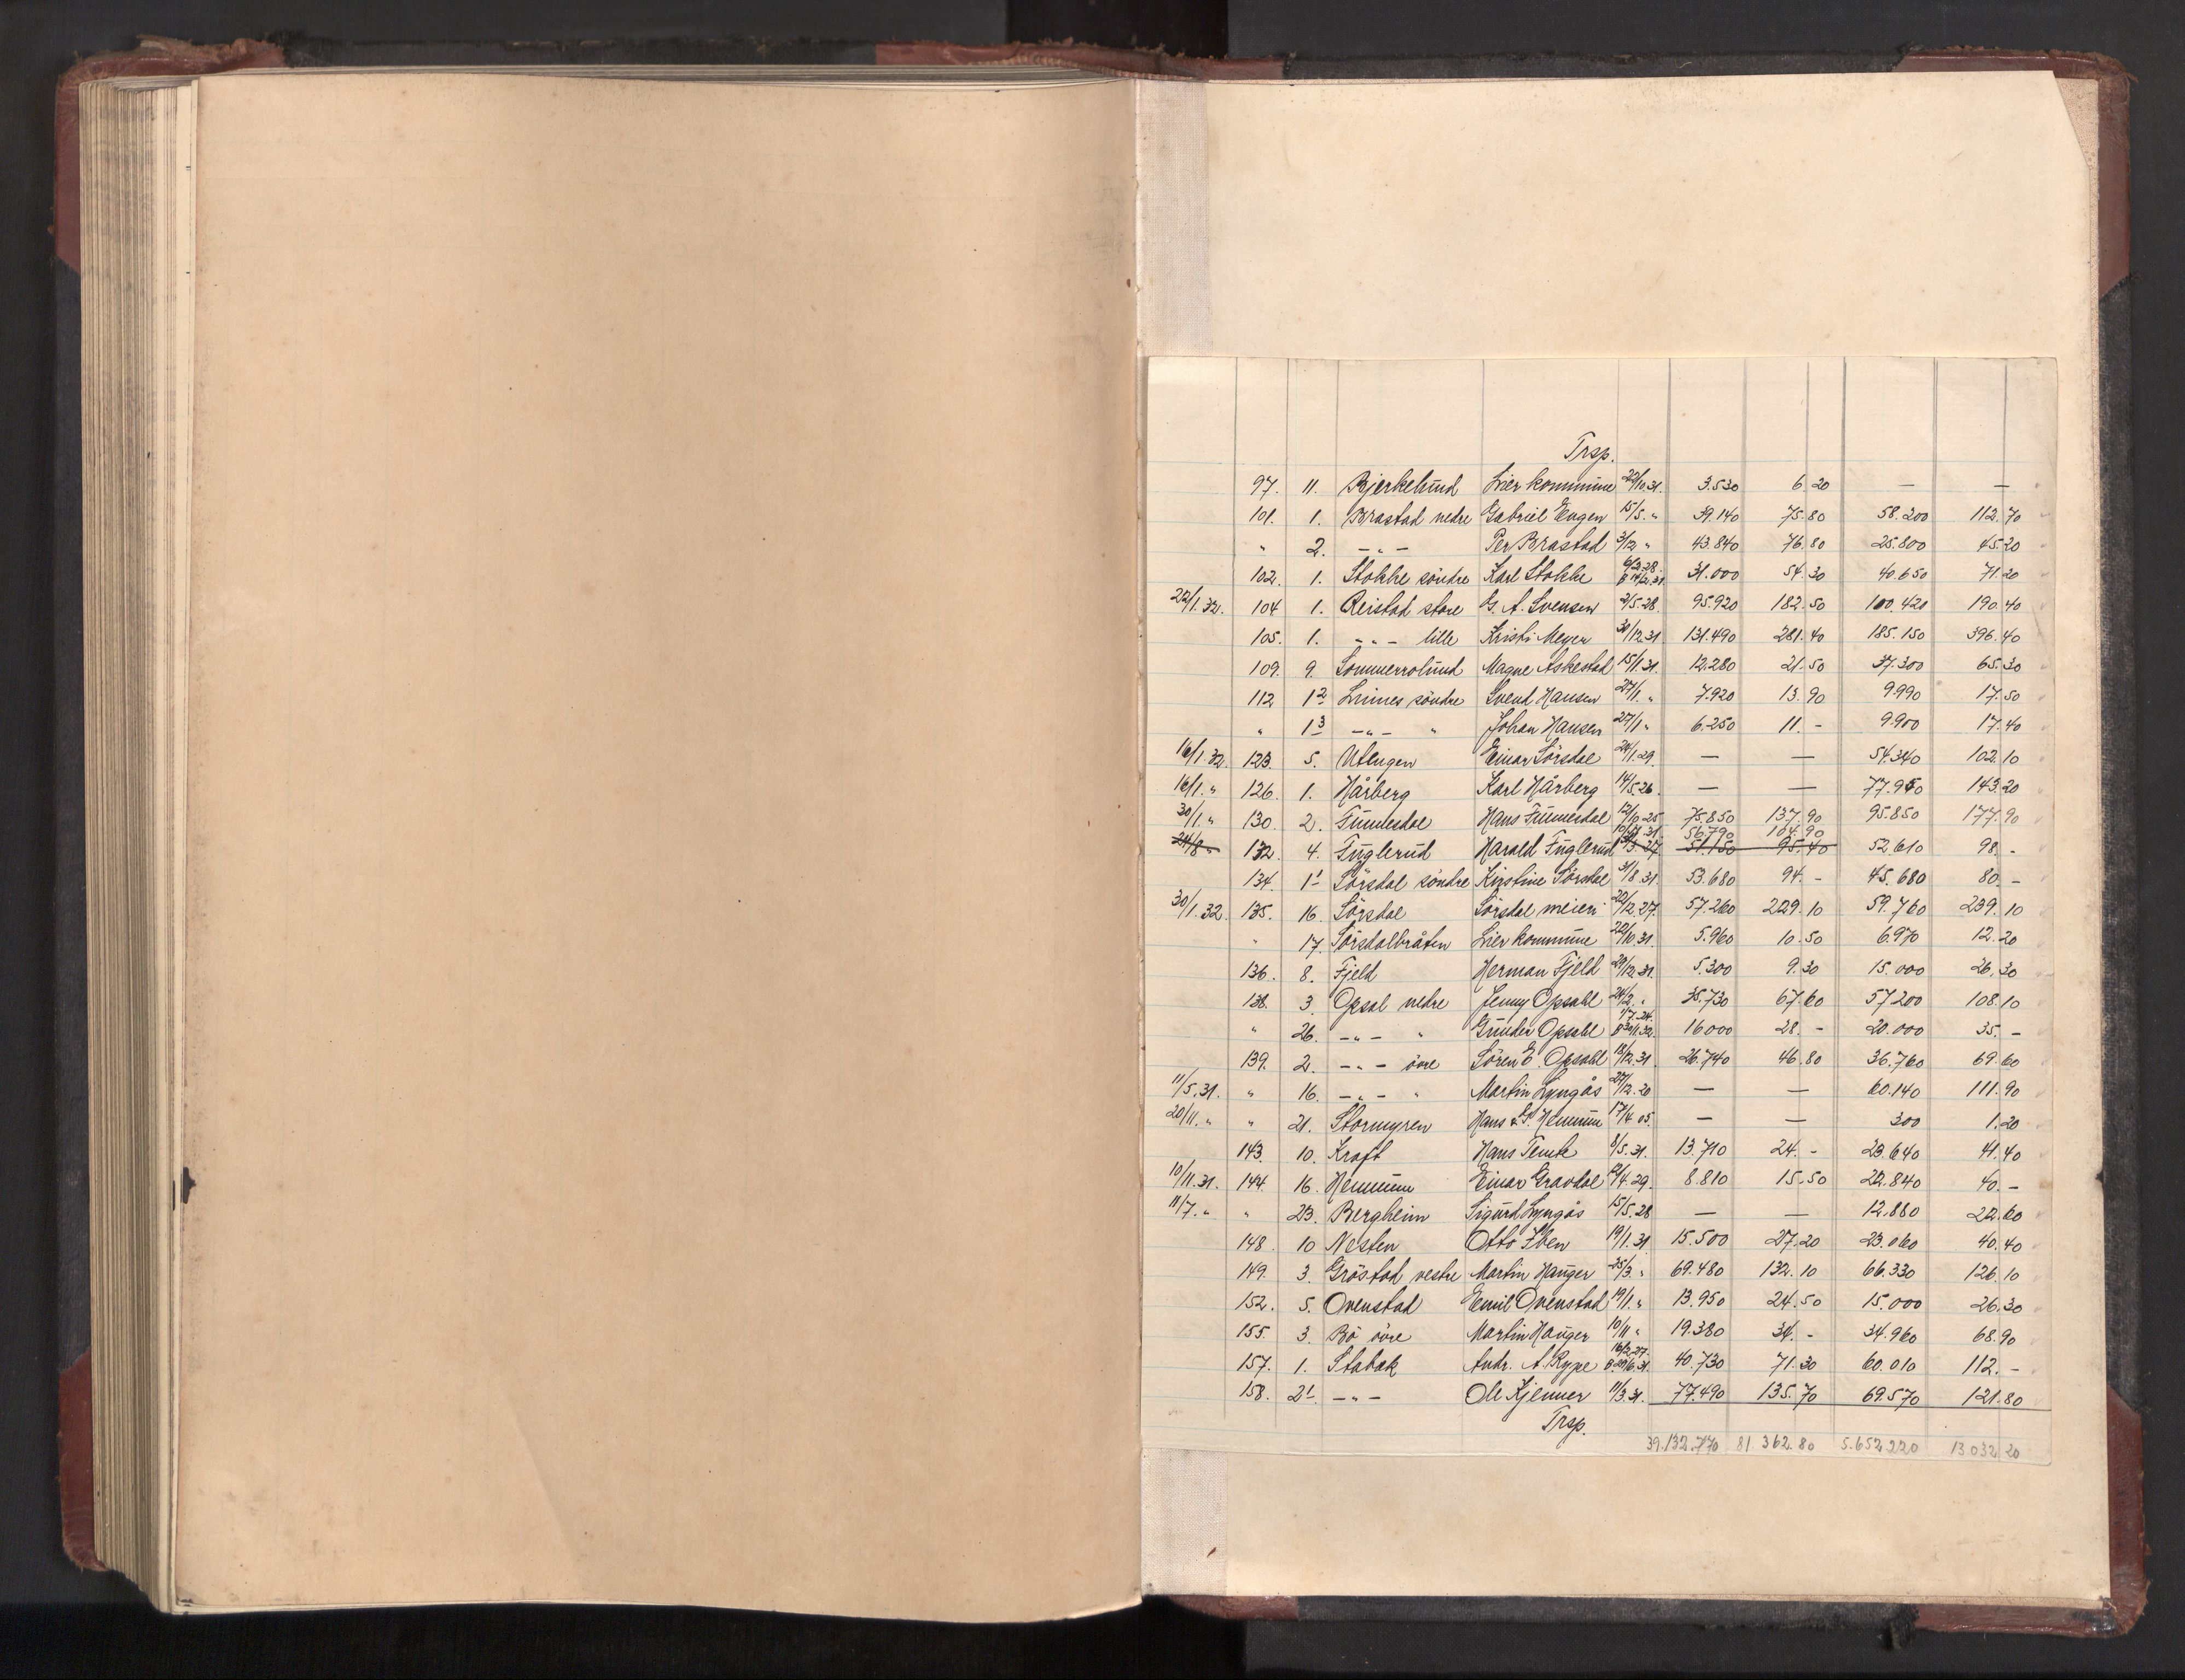 Trsp.
97. 11. Bjerkelund Lier kommune 22/10.31. 3.530 6.20 — —
101. 1. Brastad nedre Gabriel Engen 15/5. " 39.140 75.80 58.200 112.70
" 2. - " - Per Brastad 3/12 " 43.840 76.80 25.800 45.20
102. 1. Stokke söndre Karl Stokke 31.000 54.30 40.650 71.20
22/1.32. 104 1. Reistad store G. A. Svensen 2/5.28. 95.920 182.50 100.420 190.40
105. 1. - " - lille Kristi Meyer 31/12.31 131.490 281.40 185.150 396.40
109. 9. Sommerrolund Magne Askestad 15/1.31. 12.280 21.50 37.300 65.30
112 1² Linnes söndre Svend Hansen 27/1. " 7.920 13.90 9.990 17.50
" 1³ - " - " Johan Hansen 27/1 " 6.250 11.- 9.900 17.40
16/1.32. 123. 5. Utengen Einar Sörsdal 24/1.29. — — 54.340 102.10
16/1. " 126. 1. Hårberg Karl Hårberg 14/5.26. — — 77.950 143.20
30/1. " 130. 2. Tunnesdal Hans Tunnesdal 12/10.25 75.850 137.90 95.850 177.90
56.790 104.90
24/8 " 132. 4. Fuglerud Harald Fuglerud 51.150 95.40 52.610 98.-
134. 1¹ Sörsdal söndre Kirstine Sörsdal 31/8.31. 53.680 94.- 45.680 80.-
30/1.32. 135. 16. Sörsdal Sörsdal meieri 22/12.27. 57.260 229.10 59.760 239.10
" 17. Sörsdalbråten Lier kommune 22/10.31. 5.960 10.50 6.970 12.20
136. 8. Fjeld Herman Fjeld 29/12.31. 5.300 9.30 15.000 26.30
138. 3. Opsal nedre Jenny Opsahl 24/2. " 35.730 67.60 57.200 108.10
" 26. - " - " Gunder Opsahl 16000 28.- 20.000 35.-
139. 2. - " - övre Sören E. Opsahl 18/12.31. 26.740 46.80 36.760 69.60
11/5.31. " 16. - " - " Martin Lyngås 27/12.20 — — 60.140 111.90
20/11. " " 21. Stormyren Hans & G. Hennum 17/4 05. — — 300 1.20
143. 10. Kraft Hans Tenute 8/5.31. 13.710 24.- 23.640 41.40
10/11.31. 144. 16. Hennum Einar Gravdal 12/4.29. 8.810 15.50 22.840 40.-
11/7. " " 23. Bergheim Sigurd Lyngås 15/5.28 — — 12.880 22.60
148. 10 Nesten Otto Iben 19/1.31 15.500 27.20 23.060 40.40
149. 3. Gröstad vestre Martin Hauger 25/3. " 69.480 132.10 66.330 126.10
152. 5. Ovenstad Emil Ovenstad 19/1. " 13.950 24.50 15.000 26.30
155. 3. Bö övre Martin Hauger 10/11 " 19.380 34.- 34.960 68.90
157. 1. Stabæk Andr. A. Rype 40.730 71.30 60.010 112.-
158. 2¹ - " - Ole Kjenner 11/3.31. 77.490 135.70 69.570 121.80
Trsp.
39.132.770 81.362.80 5.652.220 13.032.20